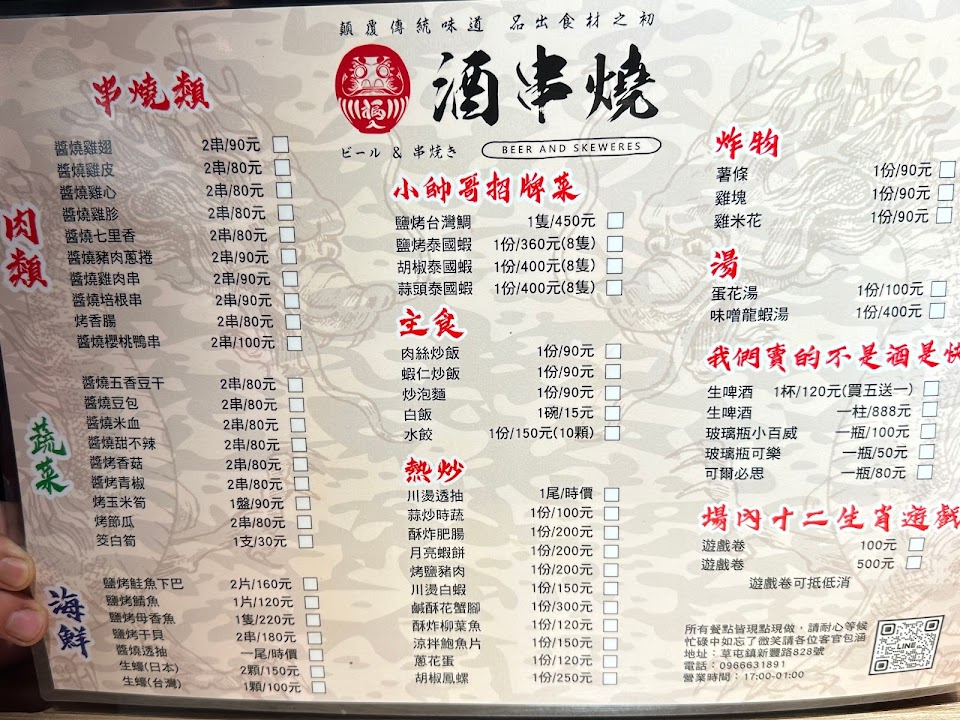 顛覆傳統味道 品出食材之初
酒串燒
ビール & 串焼き
BEER AND SKEWERES
串燒類
肉類
醬燒雞翅 2串/90元
醬燒雞皮 2串/80元
醬燒雞心 2串/80元
醬燒雞胗 2串/80元
醬燒七里香 2串/80元
醬燒豬肉蔥捲 2串/90元
醬燒雞肉串 2串/90元
醬燒培根串 2串/90元
烤香腸 2串/80元
醬燒櫻桃鴨串 2串/100元
蔬菜
醬燒五香豆干 2串/80元
醬燒豆包 2串/80元
醬燒米血 2串/80元
醬燒甜不辣 2串/80元
醬烤香菇 2串/80元
醬烤青椒 2串/80元
烤玉米筍 1盤/90元
烤節瓜 2串/80元
筊白筍 1支/30元
海鮮
鹽烤鮭魚下巴 2片/160元
鹽烤鯖魚 1片/120元
鹽烤母香魚 1隻/220元
鹽烤干貝 2串/180元
醬燒透抽 一尾/時價
生蠔(日本) 2顆/150元
生蠔(台灣) 1顆/100元
小帥哥招牌菜
鹽烤台灣鯛 1隻/450元
鹽烤泰國蝦 1份/360元(8隻)
胡椒泰國蝦 1份/400元(8隻)
蒜頭泰國蝦 1份/400元(8隻)
主食
肉絲炒飯 1份/90元
蝦仁炒飯 1份/90元
炒泡麵 1份/90元
白飯 1碗/15元
水餃 1份/150元(10顆)
熱炒
川燙透抽 1尾/時價
蒜炒時蔬 1份/100元
酥炸肥腸 1份/200元
月亮蝦餅 1份/200元
烤鹽豬肉 1份/200元
川燙白蝦 1份/150元
鹹酥花蟹腳 1份/300元
酥炸柳葉魚 1份/120元
涼拌鮑魚片 1份/150元
蔥花蛋 1份/120元
胡椒鳳螺 1份/250元
炸物
薯條 1份/90元
雞塊 1份/90元
雞米花 1份/90元
湯
蛋花湯 1份/100元
味噌龍蝦湯 1份/400元
我們賣的不是酒是快
生啤酒 1杯/120元(買五送一)
生啤酒 一柱/888元
玻璃瓶小百威 一瓶/100元
玻璃瓶可樂 一瓶/50元
可爾必思 一瓶/80元
場內十二生肖遊戲
遊戲卷 100元
遊戲卷 500元
遊戲卷可抵低消
所有餐點皆現點現做，請耐心等候
忙碌中如忘了微笑請各位客官包涵
地址：草屯鎮新豐路828號
電話：0966631891
營業時間：17:00-01:00
LINE